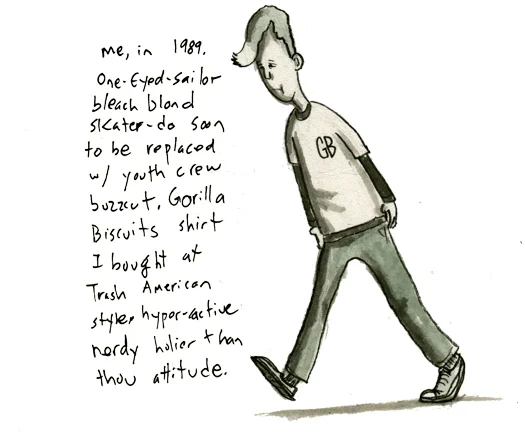 me, in 1989.
One-Eyed-Sailor
bleach blond
skater-do soon
to be replaced
w/ youth crew
buzzcut, Gorilla
Biscuits shirt
I bought at
Trash American
style, hyper-active
nerdy holier than
thou attitude.
GB